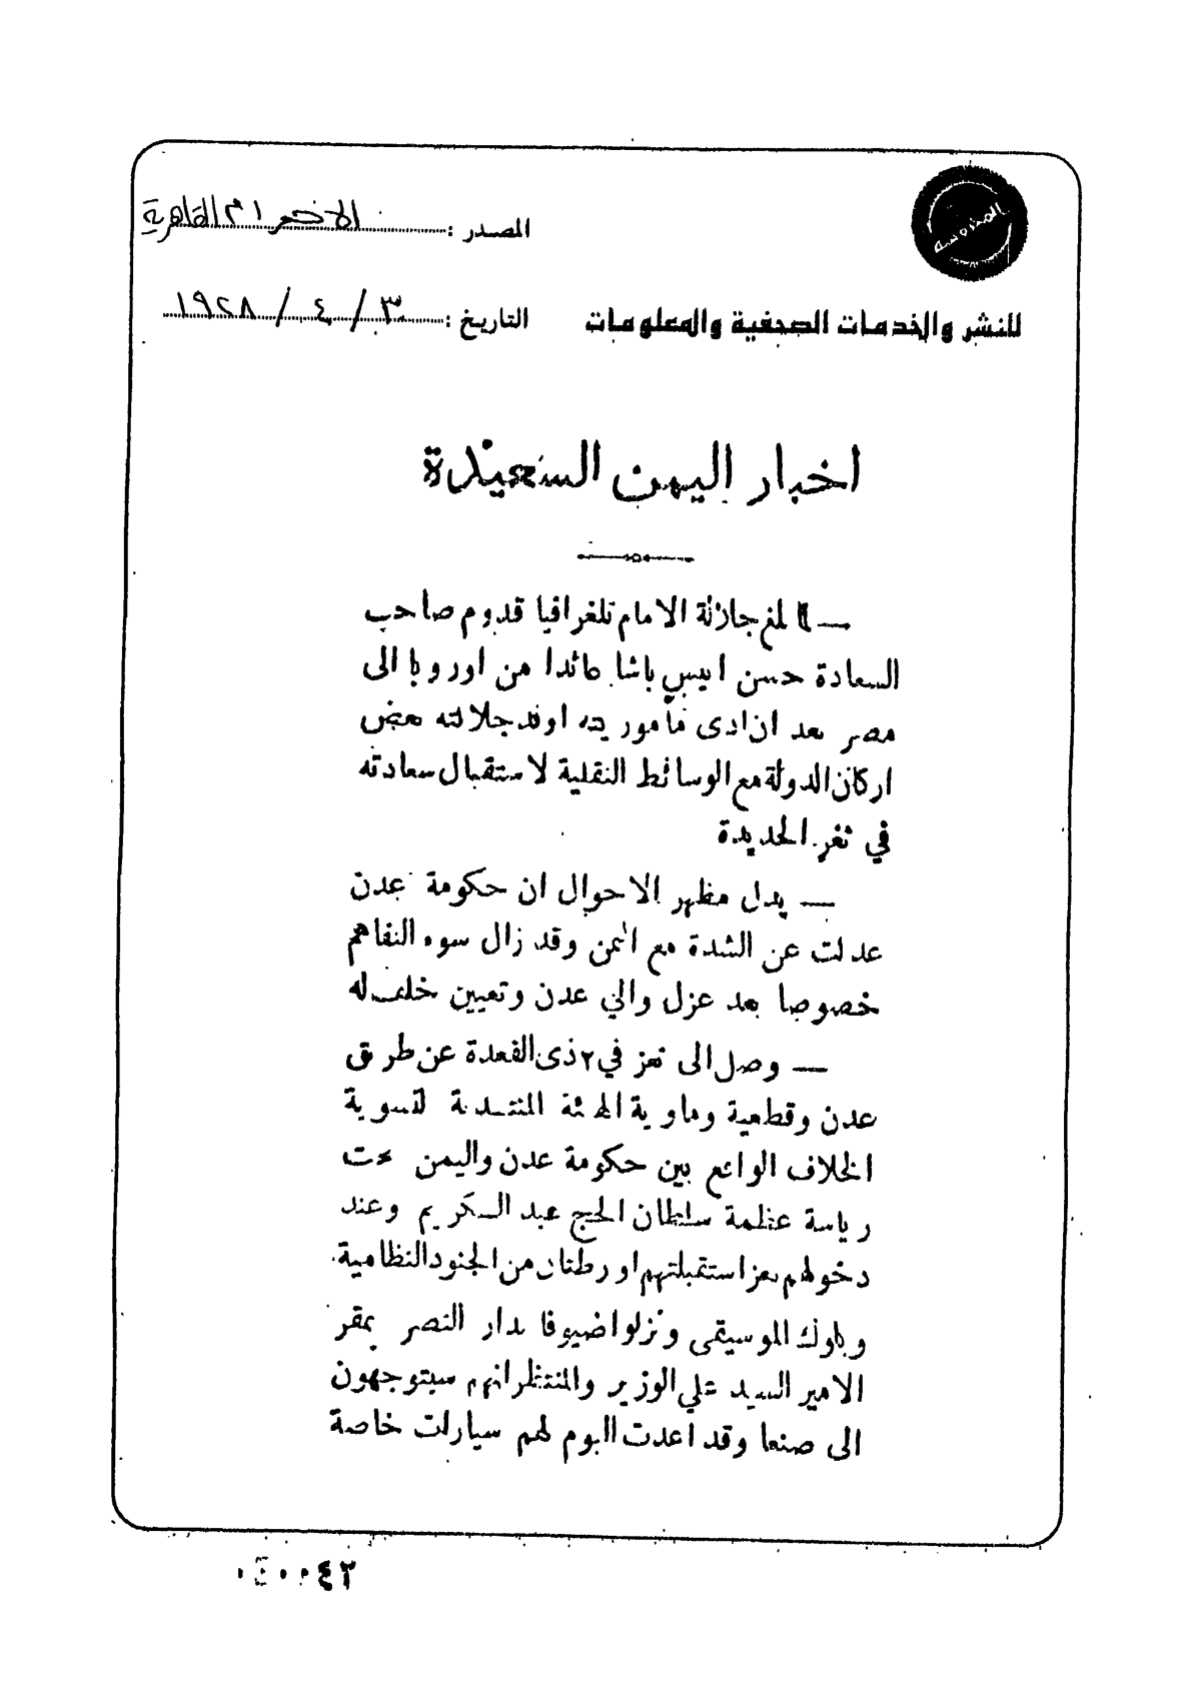 المصدر : الاهرام القاهرية
المحروسه
التاريخ : ٣٠ / ٤ / ١٩٢٨
للنشر والخدمات الصحفية والمعلومات
اخبار اليمن السعيدة
— لما بلغ جلالة الامام تلغرافيا قدوم صاحب
السعادة حسن انيس باشا عائدا من اوروبا الى
مصر بعد ان ادى مأموريته اوفد جلالته بعض
اركان الدولة مع الوسائط النقلية لاستقبال سعادته
في ثغر الحديدة
— يدل مظهر الاحوال ان حكومة عدن
عدلت عن الشدة مع اليمن وقد زال سوء التفاهم
خصوصا بعد عزل والي عدن وتعيين خلف له
— وصل الى تعز في ٢ ذى القعدة عن طريق
عدن وقطعبة وماوية الهيئة المنتدبة لتسوية
الخلاف الواقع بين حكومة عدن واليمن تحت
رياسة عظمة سلطان الحج عبد الكريم وعند
دخولهم تعز استقبلتهم اورطتان من الجنود النظامية
وبلوك الموسيقى ونزلوا ضيوفا بدار النصر بمقر
الامير السيد علي الوزير والمنتظر انهم سيتوجهون
الى صنعا وقد اعدت اليوم لهم سيارات خاصة